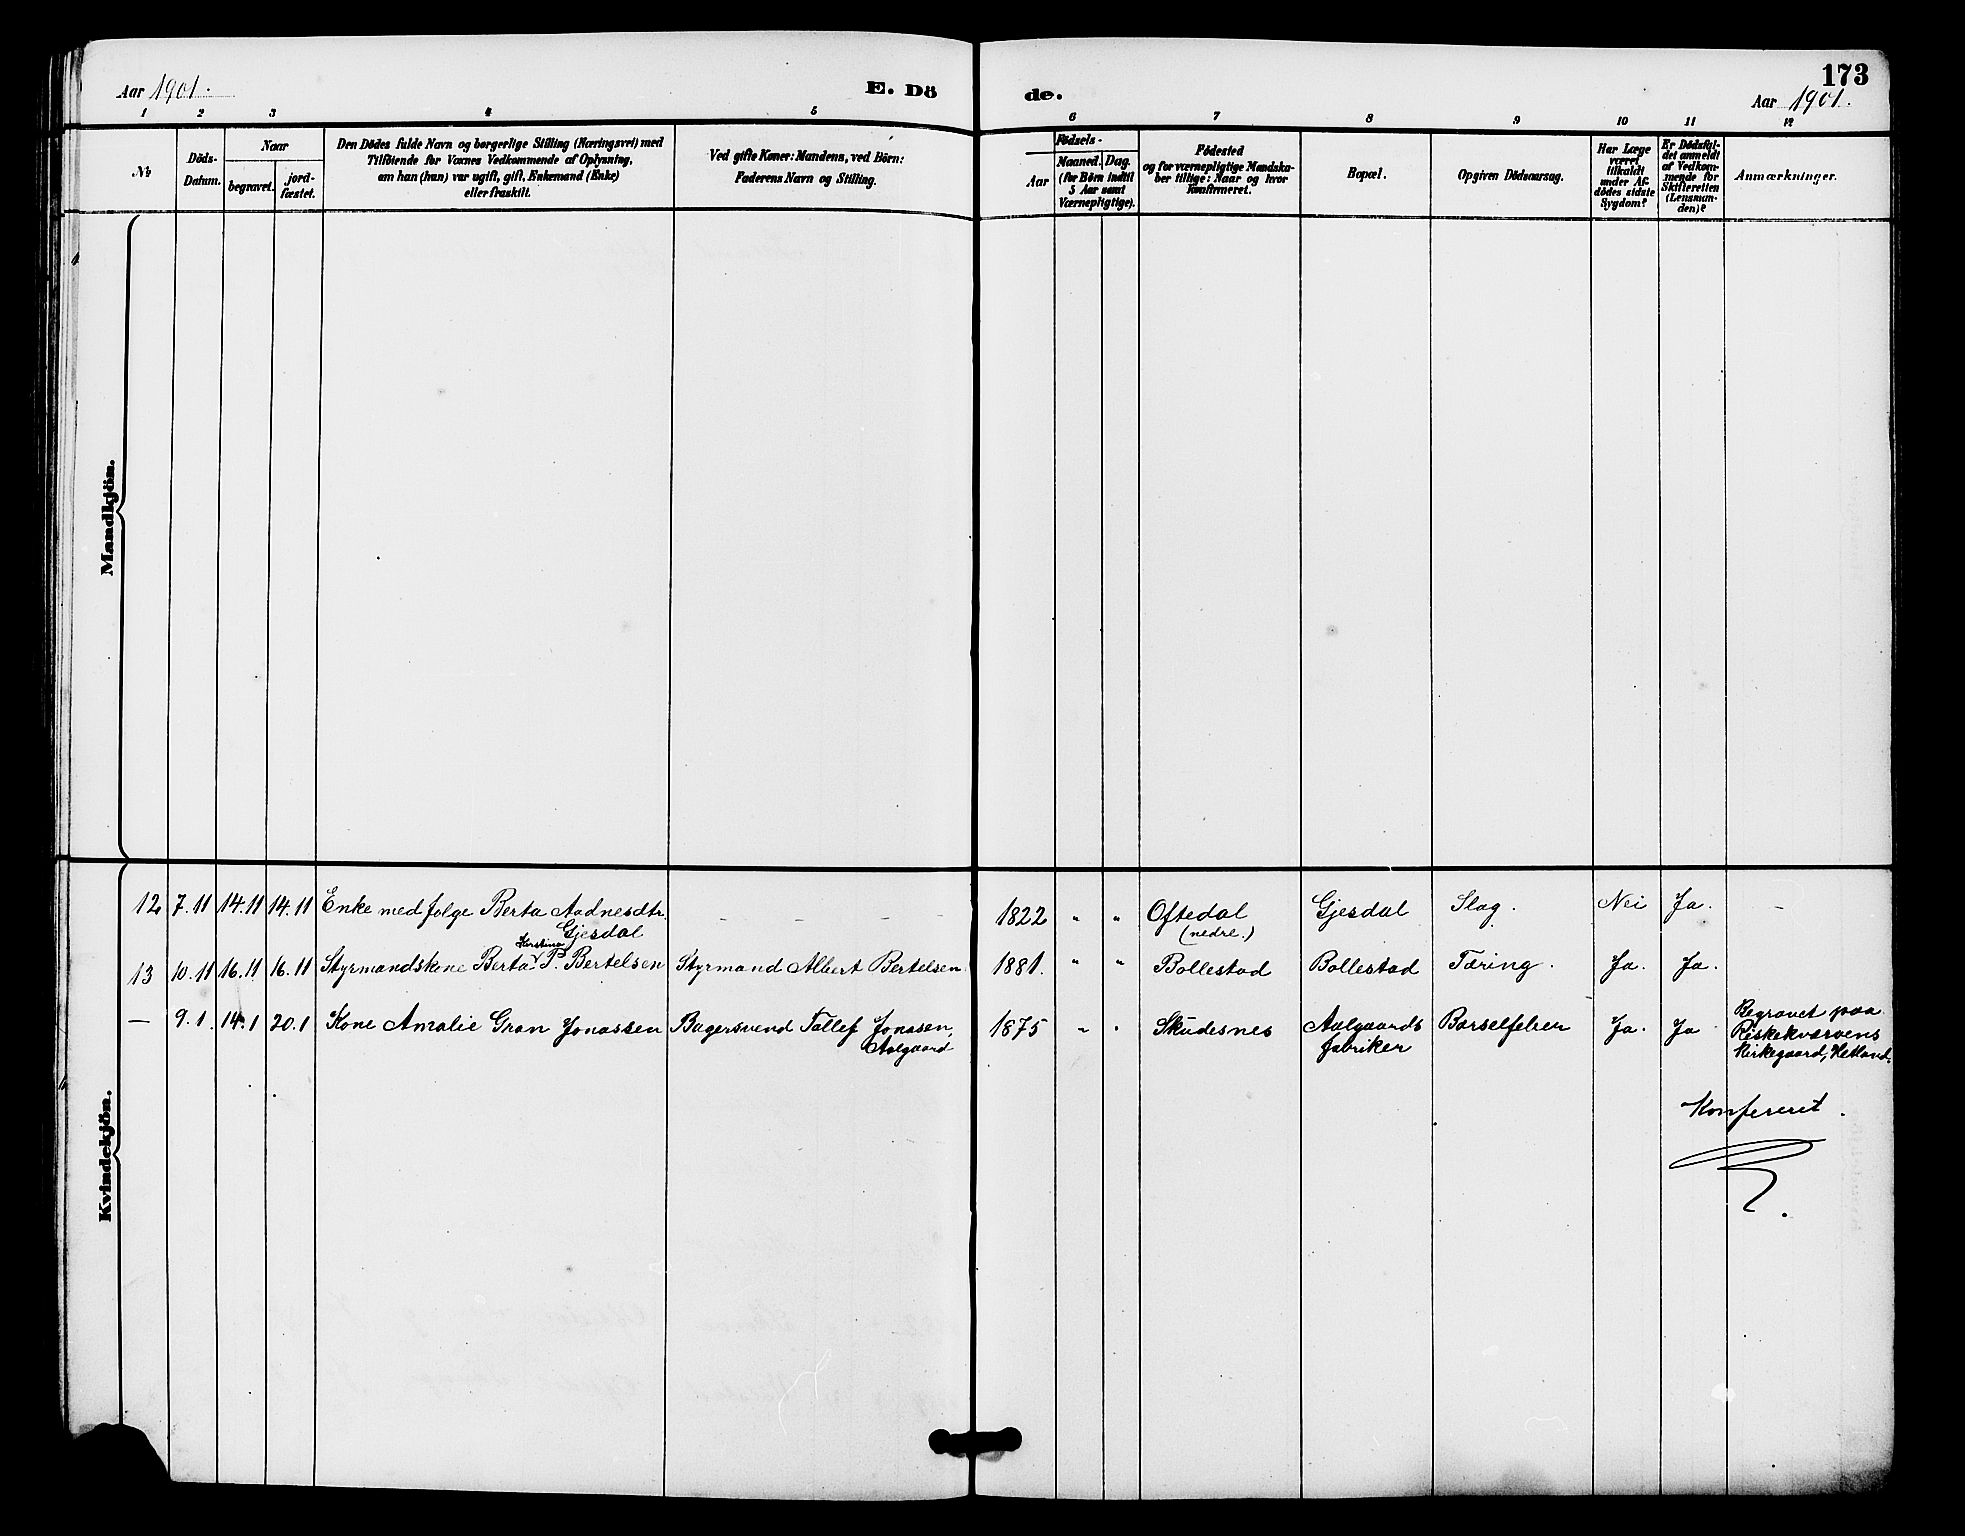 173
Aar 1901.
E. Dö
de.
Aar 1901.
1 2 3 4 5 6 7 8 9 10 11 12
No
Döds-
Datum.
Naar
begravet.
jord-
fæstet.
Den Dödes fulde Navn og borgerlige Stilling (Næringsvei) med
Tilföiende for Voxnes Vedkommende af Oplysning,
om han (hun) var ugift, gift, Enkemand (Enke)
eller fraskilt.
Ved gifte Koner: Mandens, ved Börn:
Faderens Navn og Stilling.
Födsels-
Aar
Maaned.
Dag.
(for Börn indtil
5 Aar samt
Værnepligtige).
Födested
og for værnepligtige Mandska-
ber tillige: Naar og hvor
konfirmeret.
Bopæl.
Opgiven Dödsaarsag.
Har Læge
været
tilkaldt
under Af-
dödes sidste
Sygdom?
Er Dödsfal-
det anmeldt
af Vedkom-
mende for
Skifteretten
(Lensman-
den)?
Anmærkninger.
Mandkjön.
Kvindekjön.
12 7.11 14.11 14.11 Enke med folge Berta Aadnesdtr. - - - - 1822 " " Oftedal Gjesdal Slag. Nei Ja. -
Gjesdal (nedre.)
Kirstine
13 10.11 16.11 16.11 Styrmandskone Berta P. Bertelsen Styrmand Albert Bertelsen. 1881. " " Bollestad Bollestad Tæring. Ja. Ja.
— 9.1. 14.1 20.1 Kone Amalie Gran Jonassen Bagersvend Tallef Jonasen, 1875 " " Skudesnes Aalgaards Barselfeber Ja. Ja. Begravet paa
Aalgaard fabriker Riskekværvens
Kirkegaard, Hetland.
Konfereret.